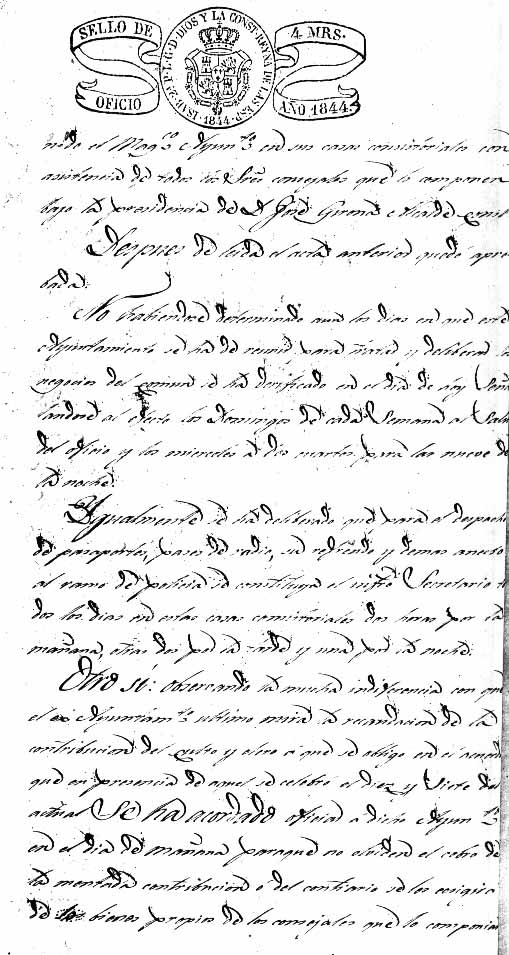 SELLO DE OFICIO
ISAB. 2ª P. L. G. D. DIOS Y LA CONST. REYNA DE LAS ESP. 1844
4 MRS. AÑO 1844.
el Magco Ayunto en sus casas consistoriales con
asistencia de todos los Sres concejales que lo componen
bajo la presidencia de D. José Alcalde
Despues de leida el acta anterior quedó apro
bada.
No habiendose determinado aun los dias en que este
Ayuntamiento se ha de reunir para y deliberar
negocios del comun se ha verificado en el dia de oy Seña
landose al efecto los Domingos de cada Semana al Salir
del oficio y los miercoles a dos cuartos para las nueve de
la noche.
Ygualmente se ha deliberado que para el despacho
de pasaportes, pases de radio, su refrendo y demas anecso
al ramo de policia se constituya el Secretario to
dos los dias en estas casas consistoriales dos horas por la
mañana, otras dos por la tarde y una por la noche.
Otro si: observando la mucha indiferencia con que
el ex Ayuntamto ultimo mira la recaudacion de la
contribucion del culto y clero a que se obligo en el acuerdo
que en presencia de aquel se celebro el diez y siete del
actual Se ha acordado oficiar a dicho Ayunto
en el dia de mañana paraque no olviden el cobro de
la mentada contribucion o del contrario se los exigira
de bienes propios de los concejales que lo componian